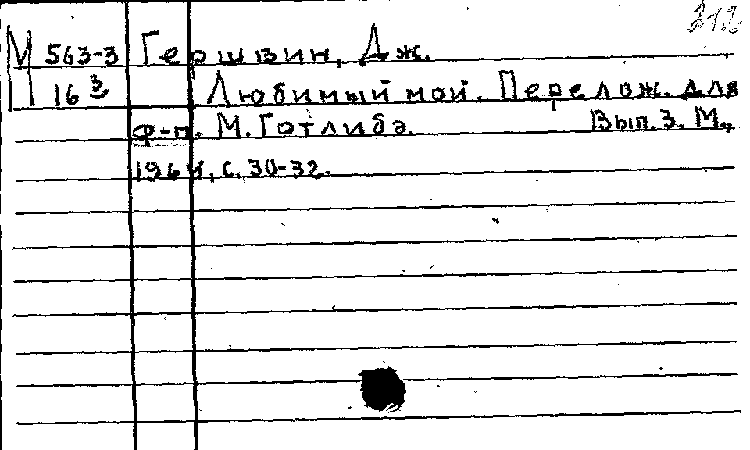 212
М 563-3 Гершвин, Дж.
П 16 3 Любимый мой. Перелож. для
ф-п. М. Готлиба. Вып. 3. М.,
1964, с. 30-32.